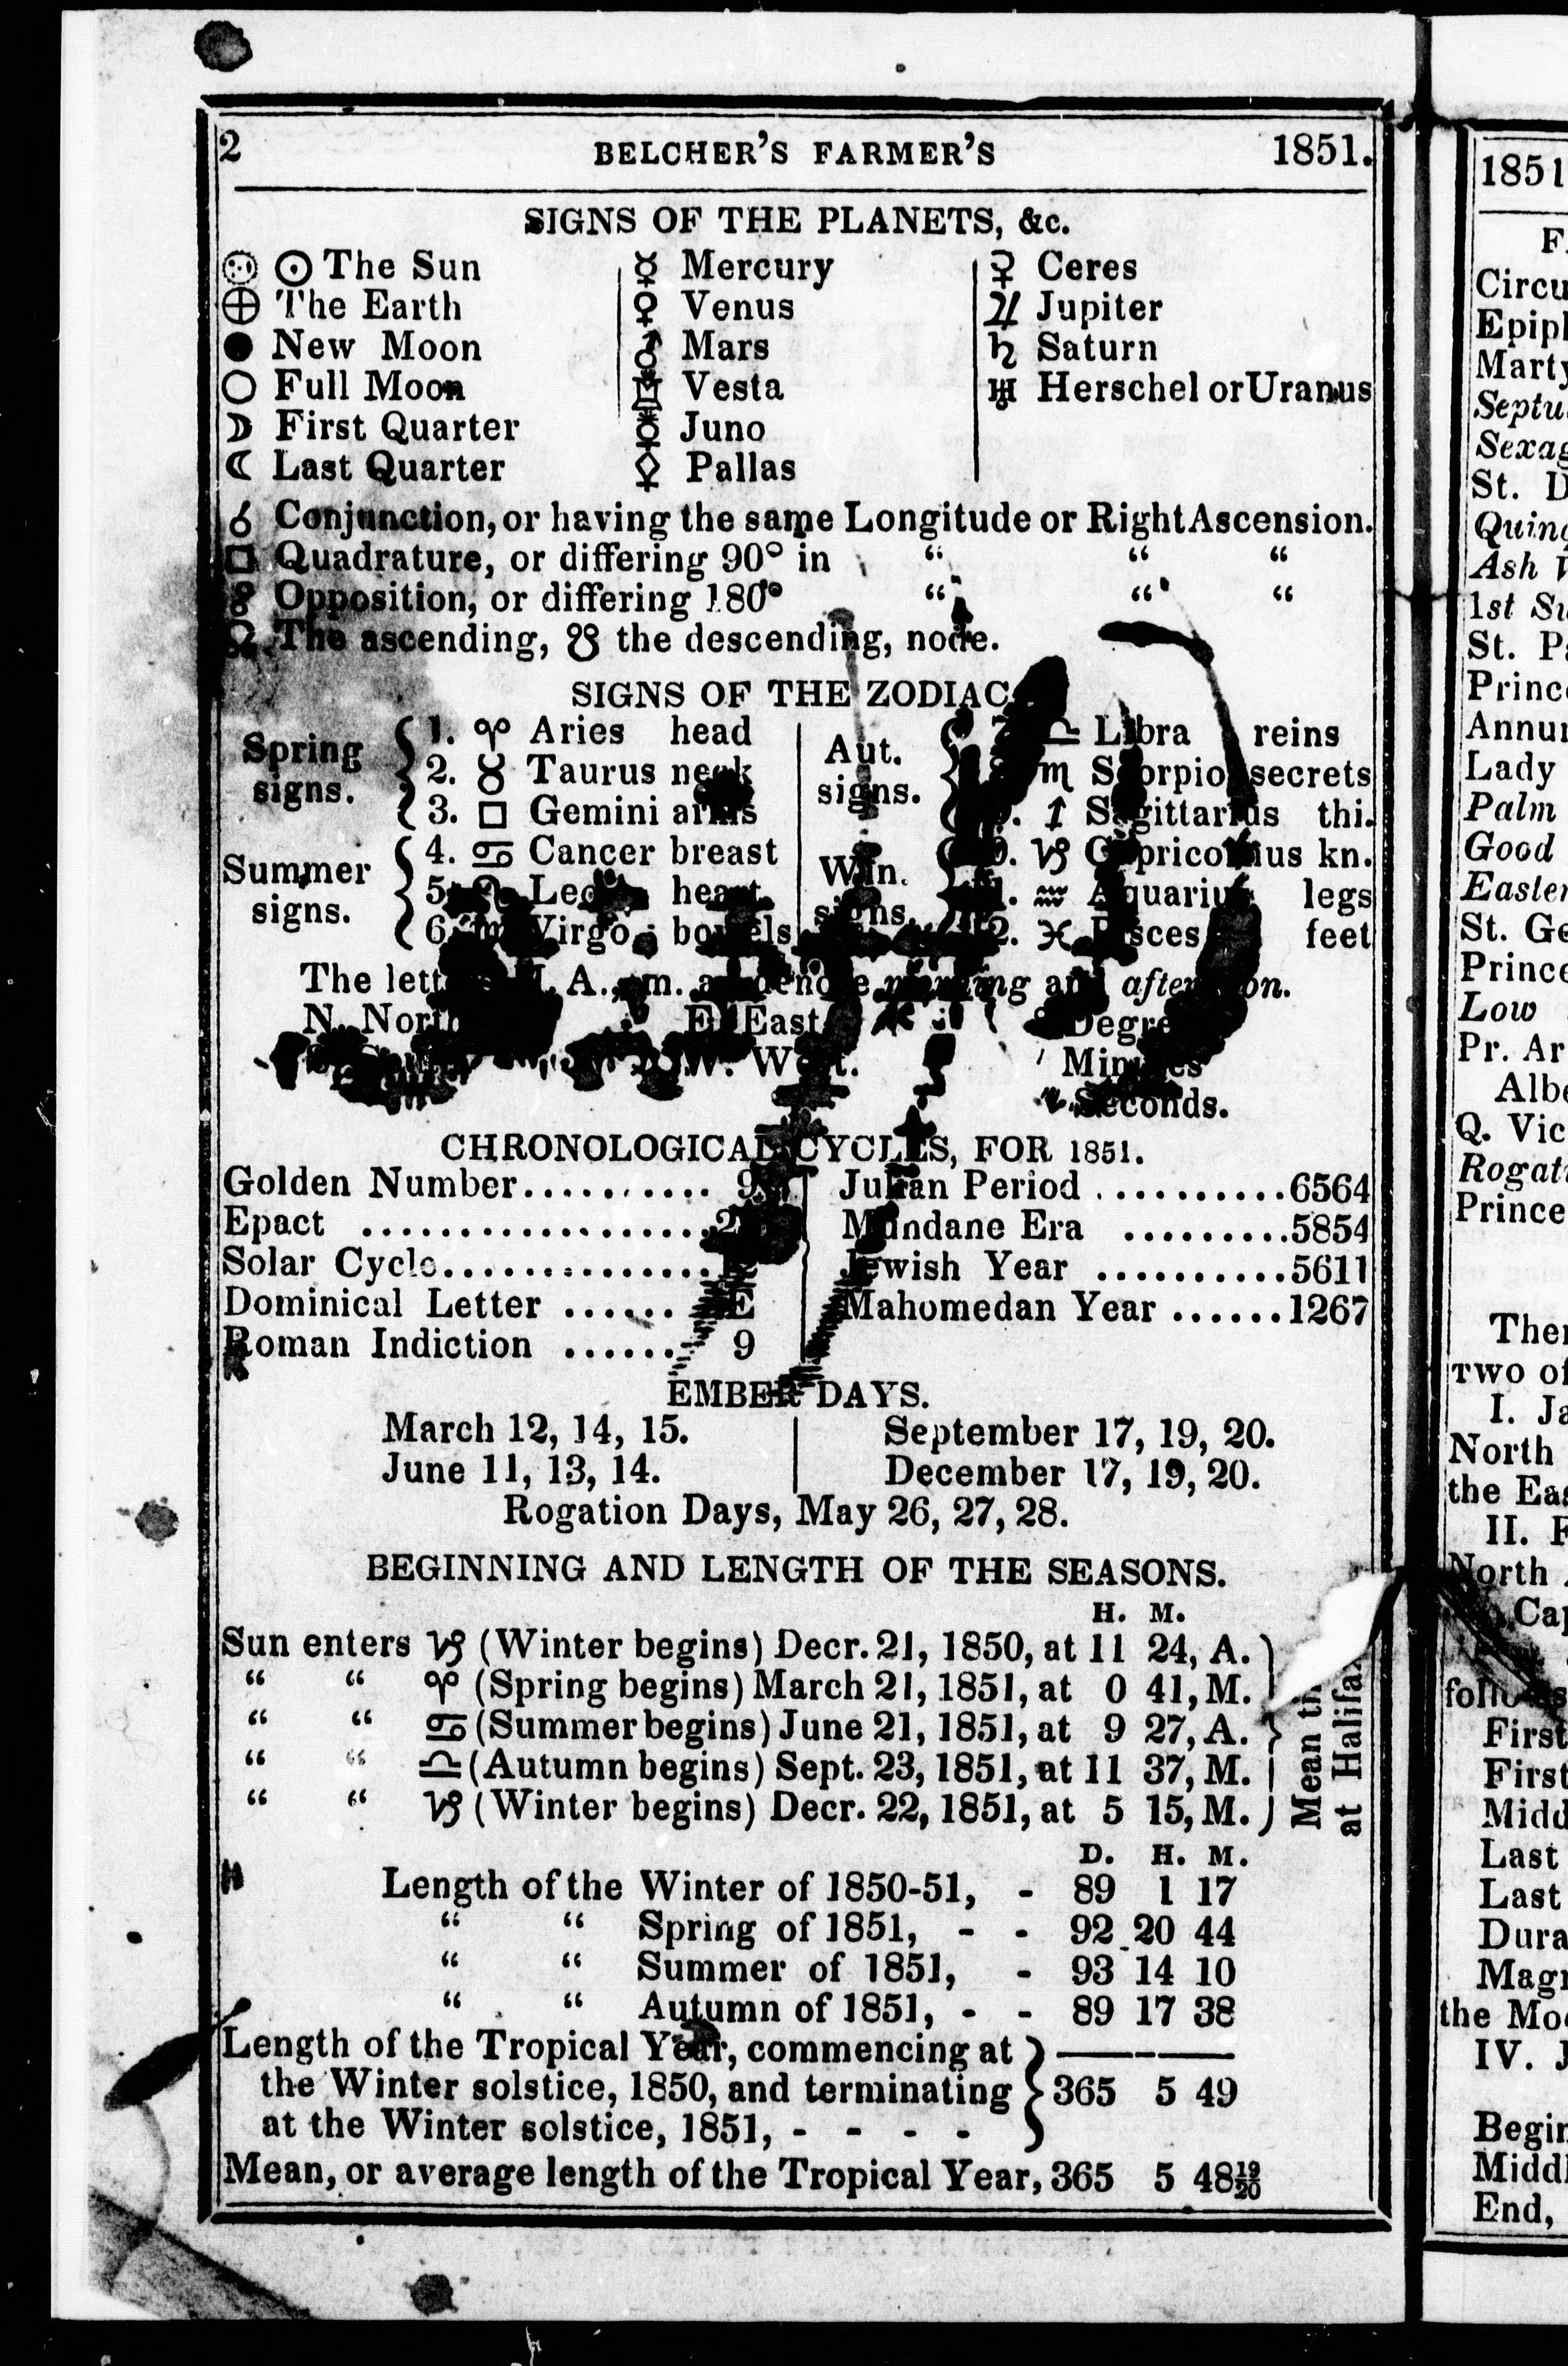 2 BELCHER'S FARMER'S 1851.
SIGNS OF THE PLANETS, &c.
☉ The Sun ☿ Mercury ⚳ Ceres
⊕ The Earth ♀ Venus ♃ Jupiter
● New Moon ♂ Mars ♄ Saturn
○ Full Moon ⚶ Vesta ♅ Herschel or Uranus
☽ First Quarter ⚵ Juno
☾ Last Quarter ⚴ Pallas
☌ Conjunction, or having the same Longitude or Right Ascension.
□ Quadrature, or differing 90° in “ “ “
☍ Opposition, or differing 180° “ “ “
☊ The ascending, ☋ the descending, node.
SIGNS OF THE ZODIAC
Spring signs. { 1. ♈ Aries head
2. ♉ Taurus neck
3. □ Gemini arms
Summer signs. { 4. ♋ Cancer breast
5. ♌ Leo heart
6. ♍ Virgo bowels
Aut. signs. { 7. ♎ Libra reins
♏ Scorpio secrets
♐ Sagittarius thi.
Win. signs. { ♑ Capricornus kn.
♒ Aquarius legs
12. ♓ Pisces feet
The letters M. A., m. a. denote morning and afternoon.
N. North E. East Degrees
W. West. ′ Minutes
″ Seconds.
CHRONOLOGICAL CYCLES, FOR 1851.
Golden Number.......... 9 Julian Period ..........6564
Epact .................. Mundane Era .........5854
Solar Cycle.............. Jewish Year ..........5611
Dominical Letter ...... E Mahomedan Year ......1267
Roman Indiction ...... 9
EMBER DAYS.
March 12, 14, 15. September 17, 19, 20.
June 11, 13, 14. December 17, 19, 20.
Rogation Days, May 26, 27, 28.
BEGINNING AND LENGTH OF THE SEASONS.
H. M.
Sun enters ♑ (Winter begins) Decr. 21, 1850, at 11 24, A.
“ “ ♈ (Spring begins) March 21, 1851, at 0 41, M.
“ “ ♋ (Summer begins) June 21, 1851, at 9 27, A.
“ “ ♎ (Autumn begins) Sept. 23, 1851, at 11 37, M.
“ “ ♑ (Winter begins) Decr. 22, 1851, at 5 15, M.
Mean
at Halifax
D. H. M.
Length of the Winter of 1850-51, - 89 1 17
“ “ Spring of 1851, - - 92 20 44
“ “ Summer of 1851, - 93 14 10
“ “ Autumn of 1851, - - 89 17 38
Length of the Tropical Year, commencing at
the Winter solstice, 1850, and terminating } 365 5 49
at the Winter solstice, 1851, - - - -
Mean, or average length of the Tropical Year, 365 5 48 19/20
1851
Circu
Epiph
Marty
Septu
Sexag
St. D
Quinq
Ash W
1st Su
St. Pa
Prince
Annun
Lady
Palm
Good
Easter
St. Ge
Prince
Low
Pr. Ar
Albe
Q. Vic
Rogati
Prince
Ther
TWO of
I. Ja
North
the Eas
II. F
North
Cap
follows
First
First
Midd
Last
Last
Dura
Magn
the Moo
IV. J
Begin
Middl
End,